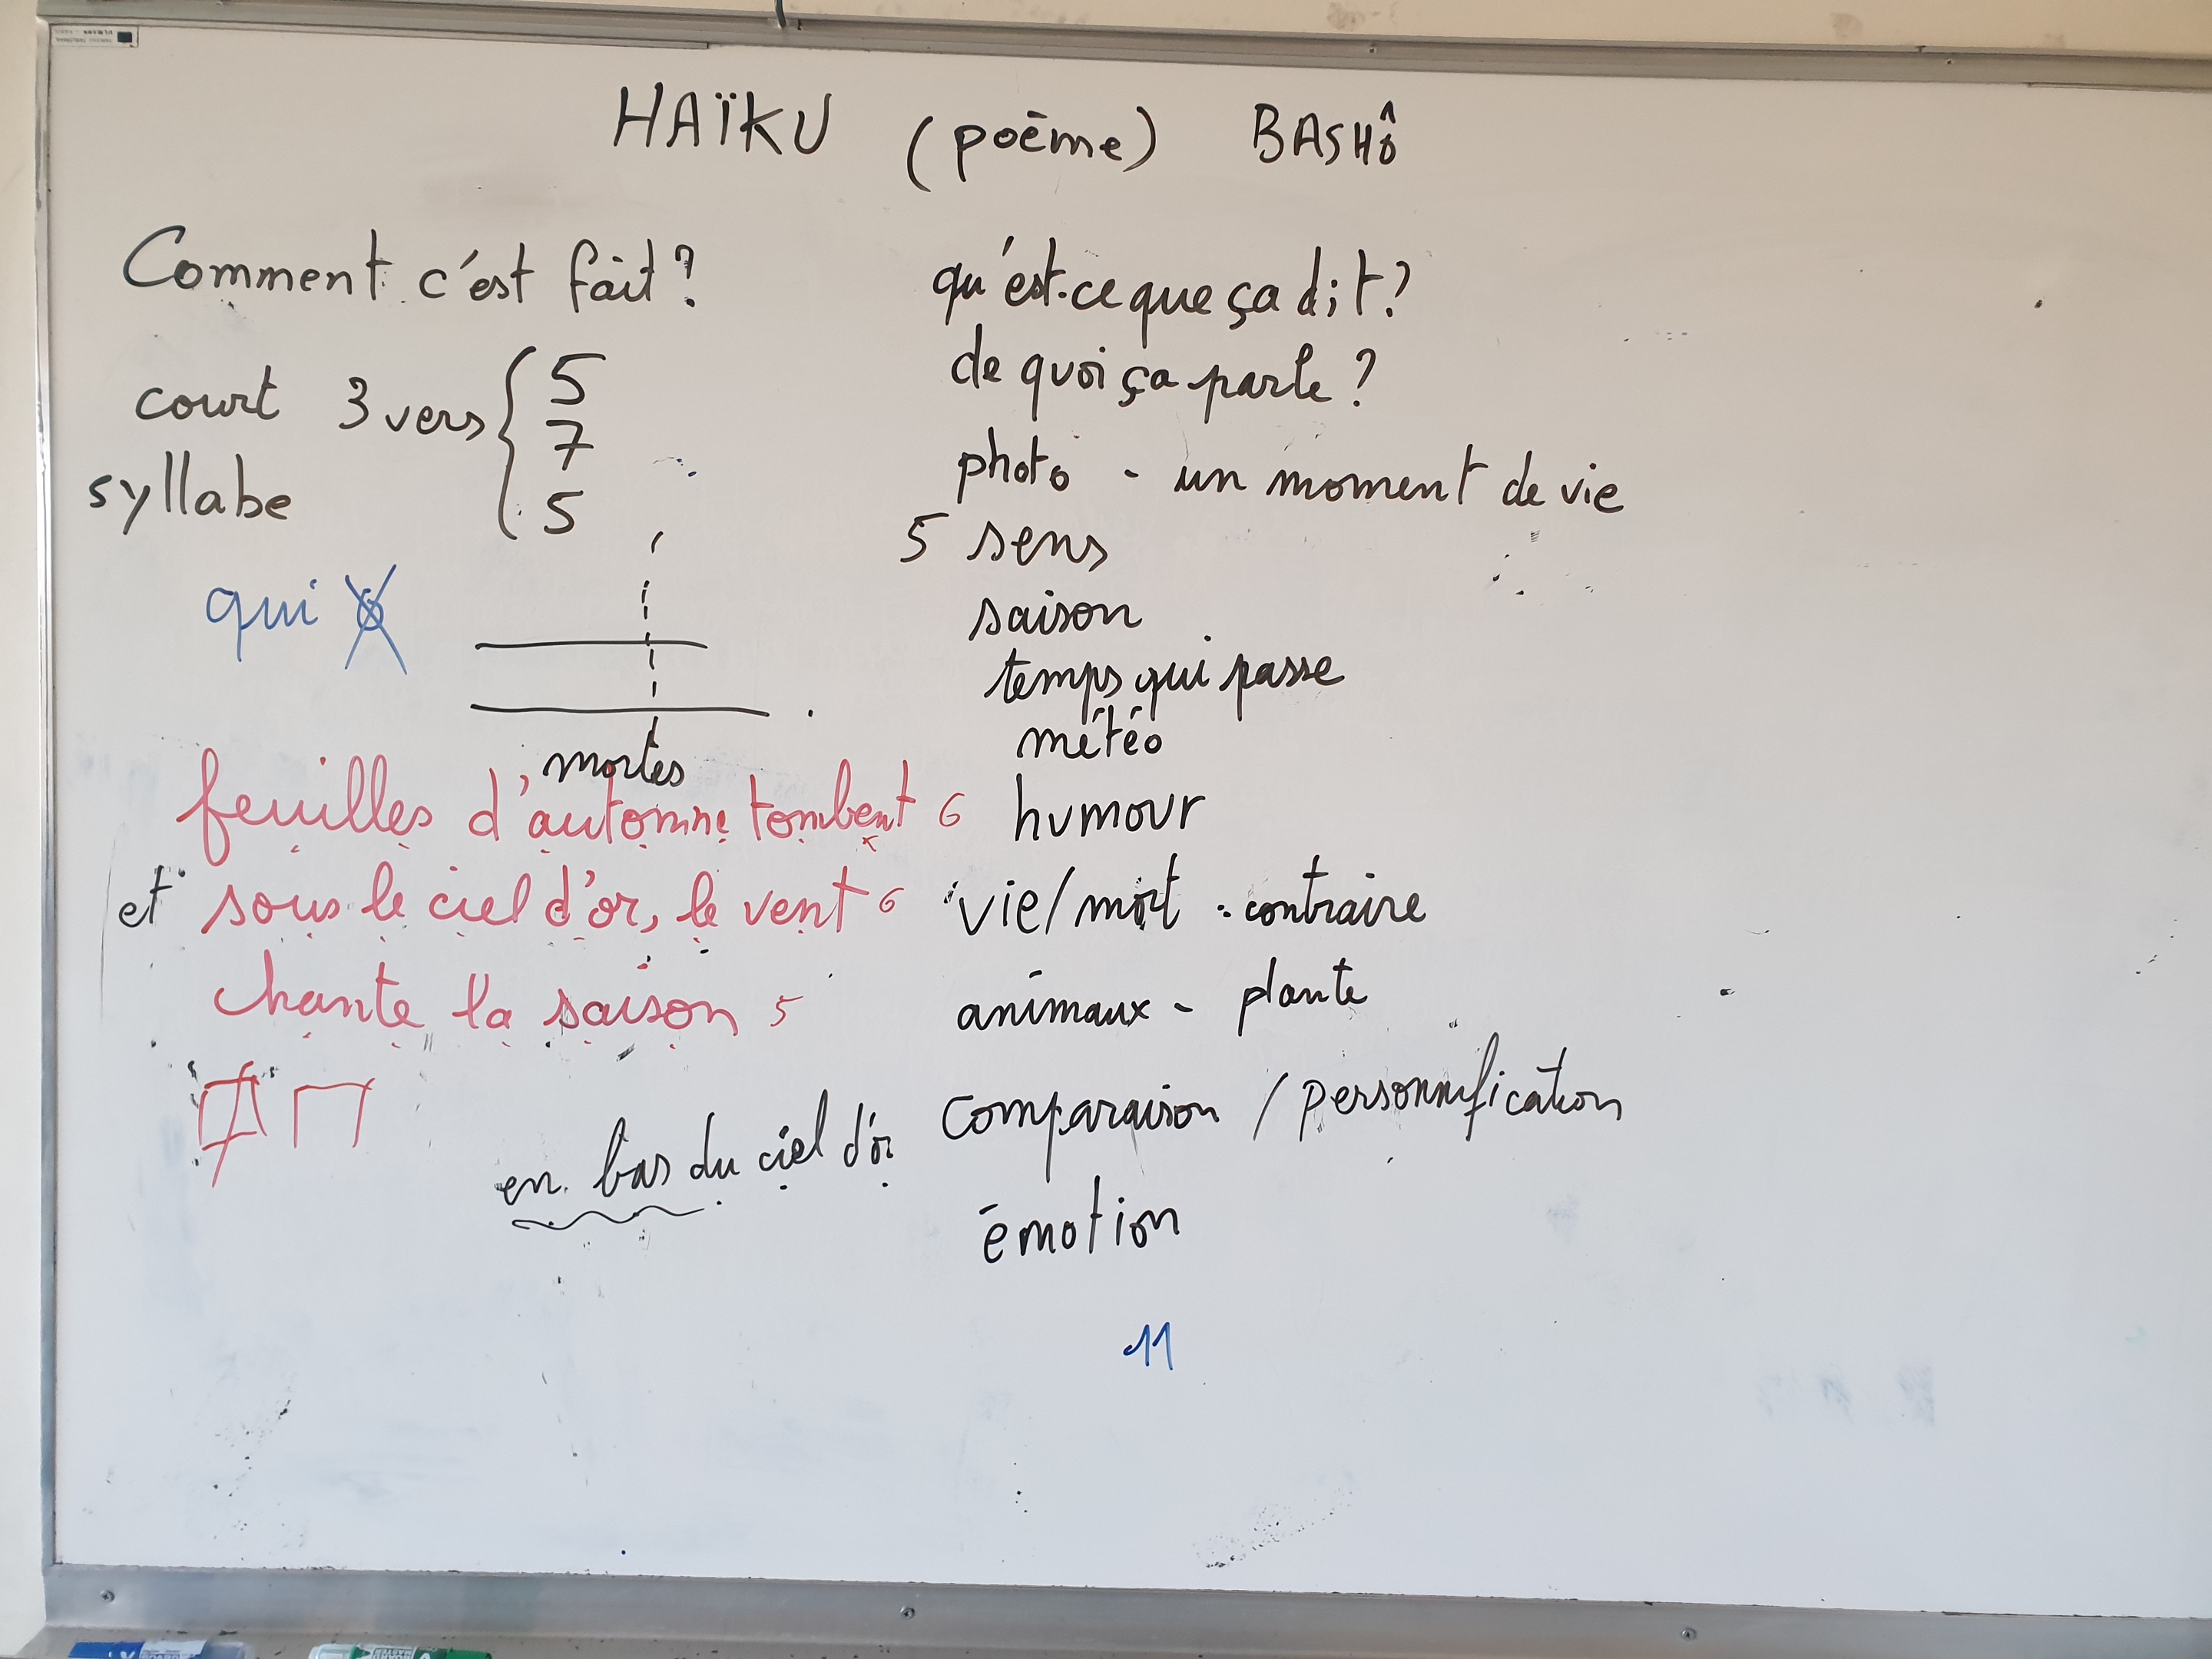 HAÏKU (poème) BASHÔ
Comment c'est fait ?
court 3 vers { 5
7
syllabe 5
qui
mortes
feuilles d'automne tombent 6
et sous le ciel d'or, le vent 6
chante la saison 5
en bas du ciel d'or
qu'est-ce que ça dit ?
de quoi ça parle ?
photo - un moment de vie
5 sens
saison
temps qui passe
météo
humour
vie/mort : contraire
animaux - plante
comparaison / personnification
émotion
11